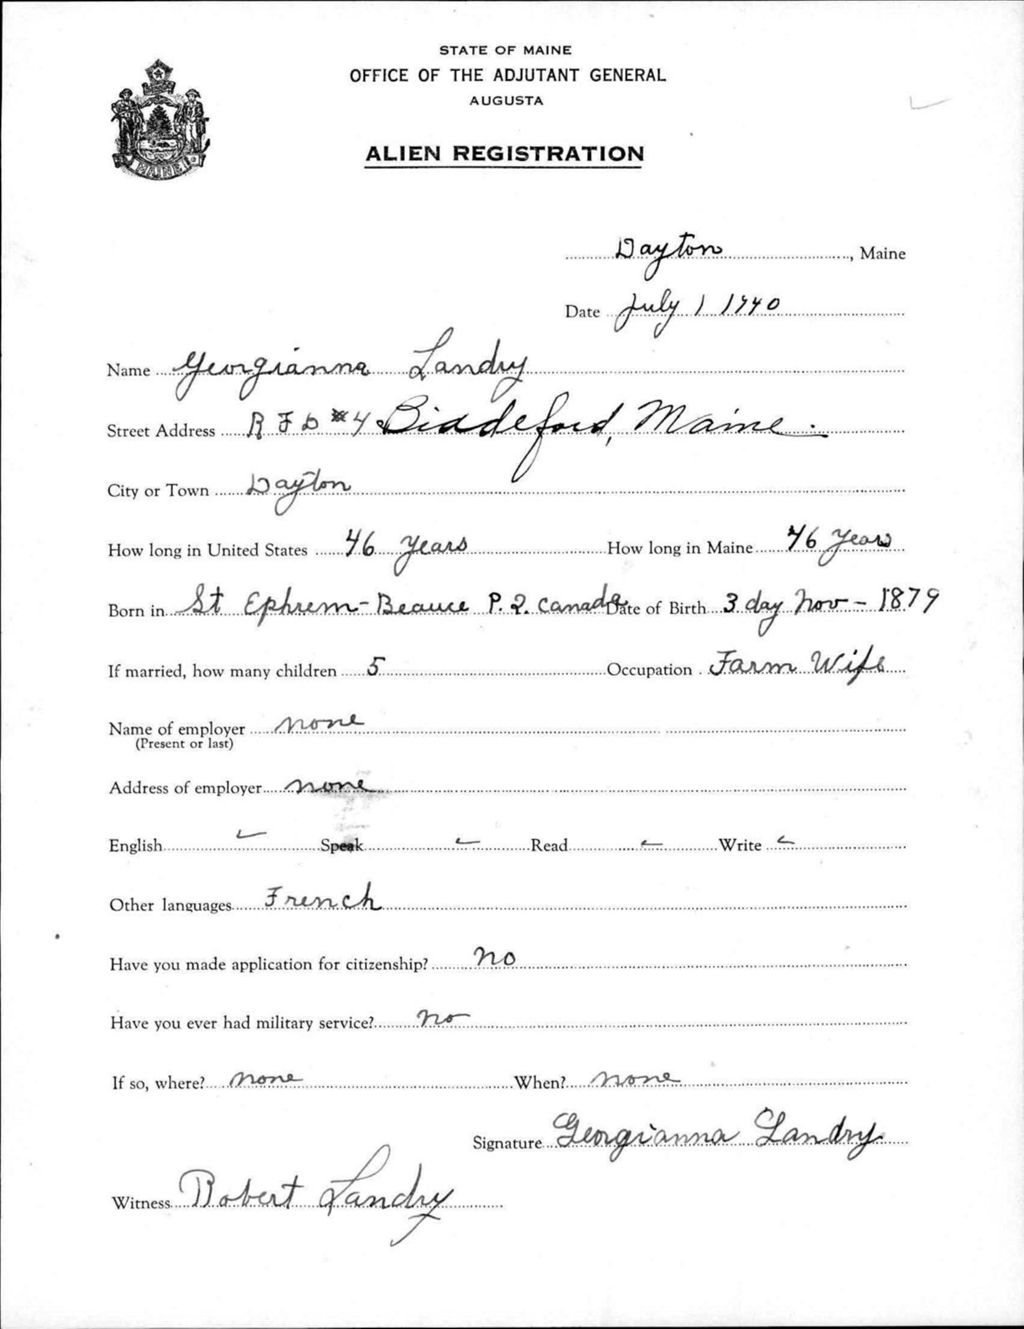 STATE OF MAINE
OFFICE OF THE ADJUTANT GENERAL
AUGUSTA
ALIEN REGISTRATION
MAINE
Dayton, Maine
Date July 1 1940
Name Georgianna Landry
Street Address R F D #4 Biddeford, Maine.
City or Town Dayton
How long in United States 46 years How long in Maine 46 years
Born in St Ephrem - Beauce P.Q. Canada Date of Birth 3 day Nov - 1879
If married, how many children 5 Occupation Farm Wife
Name of employer none
(Present or last)
Address of employer none
English ✓ Speak ✓ Read ✓ Write ✓
Other languages French
Have you made application for citizenship? No
Have you ever had military service? No
If so, where? none When? none
Signature Georgianna Landry
Witness Robert Landry